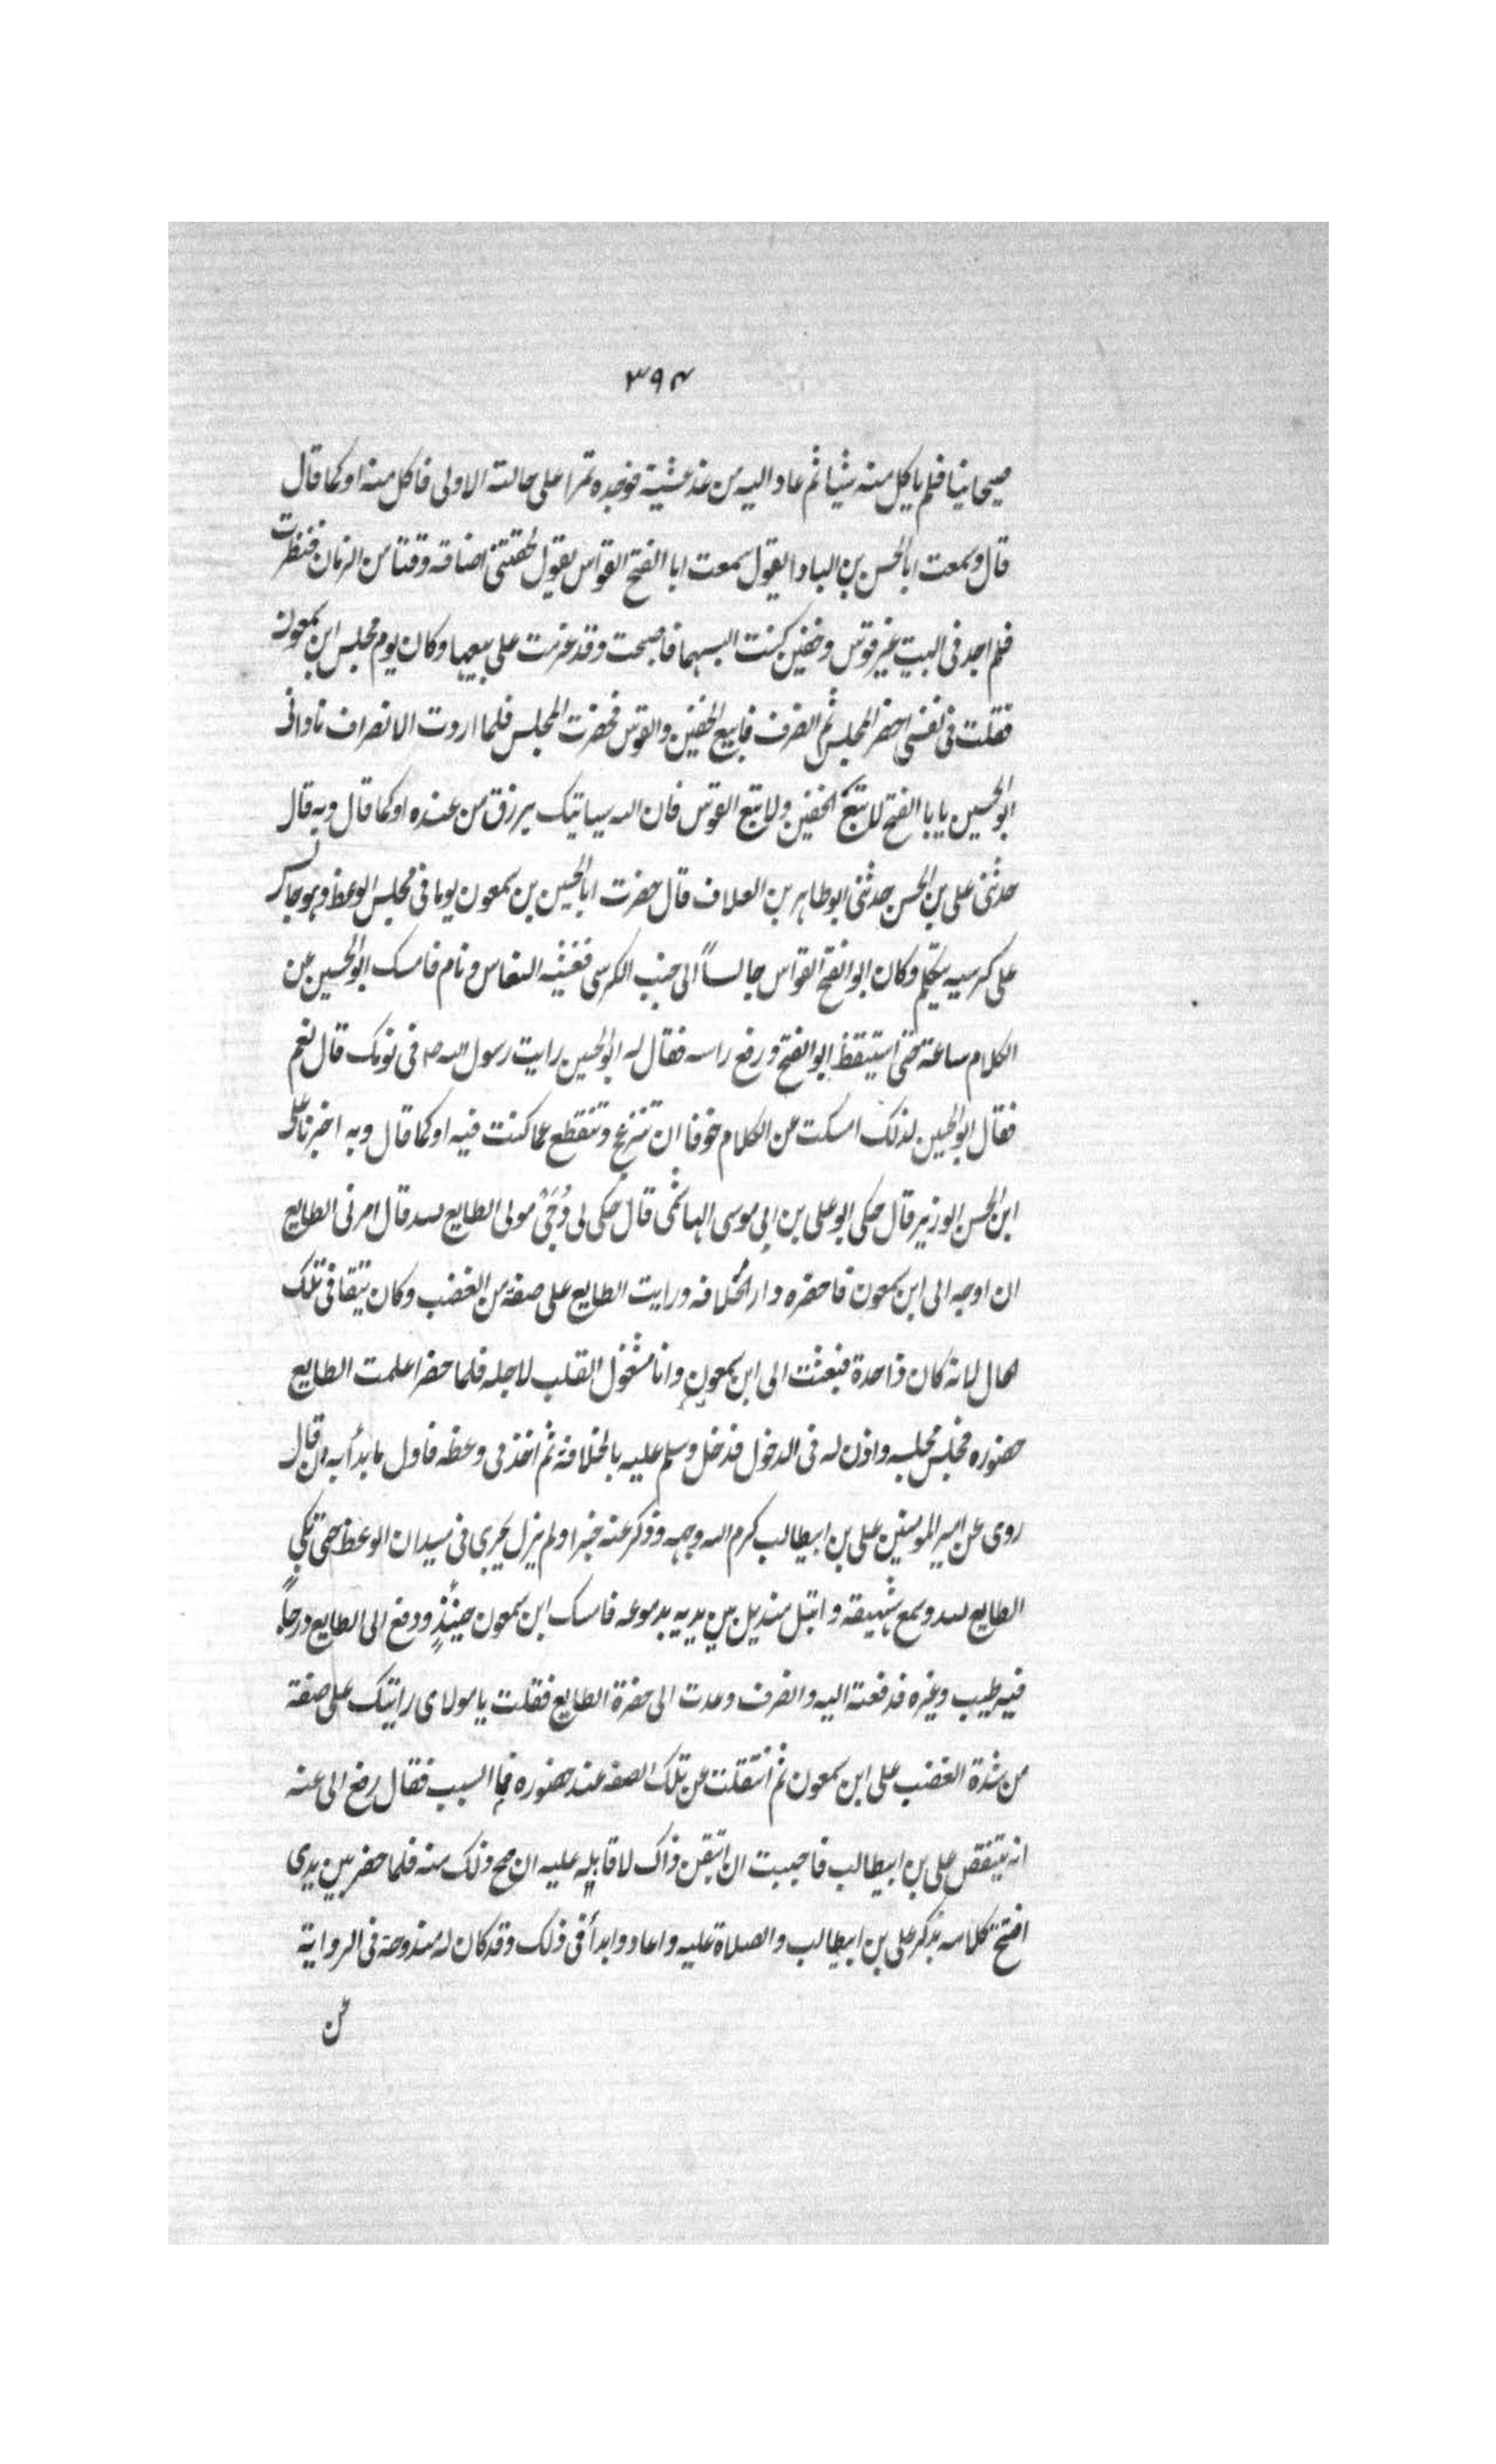 ٣٩٤
صيحانيا فلم ياكل منه شيئا ثم عاد اليه من غد عشية فوجده تمرا على حالته الاولى فاكل منه او كما قال
قال وسمعت ابا الحسن بن البادا يقول سمعت ابا الفتح القواس يقول لحقتنى اضاقة وقتا من الزمان فنظرت
فلم اجد فى البيت غير قوس وخفين كنت البسهما فاصبحت وقد عزمت على بيعهما وكان يوم مجلس ابن سمعون
فقلت فى نفسى احضر المجلس ثم انصرف فابيع الخفين والقوس فحضرت المجلس فلما اردت الانصراف نادانى
ابو الحسين يا با الفتح لا تبع الخفين ولا تبع القوس فان الله سياتيك برزق من عنده او كما قال وبه قال
حدثنى على بن الحسن حدثنى ابو طاهر بن العلاف قال حضرت ابا الحسين بن سمعون يوما فى مجلس الوعظ وهو جالس
على كرسيه يتكلم وكان ابو الفتح القواس جالساً الى جنب الكرسى فغشيه النعاس ونام فامسك ابو الحسين عن
الكلام ساعة حتى استيقظ ابو الفتح ورفع راسه فقال له ابو الحسين رايت رسول الله ص فى نومك قال نعم
فقال ابو الحسين لذلك امسكت عن الكلام خوفا ان تنزعج وتنقطع عما كنت فيه او كما قال وبه اخبرنا على
ابن الحسن الوزير قال حكى ابو على بن ابى موسى الهاشمى قال حكى لى دُجَىً مولى الطايع لله قال امرنى الطايع
ان اوجه الى ابن سمعون فاحضره دار الخلافه ورايت الطايع على صفة من الغضب وكان يتقا فى تلك
الحال لانه كان ذا حدة فبعثت الى ابن سمعون وانا مشغول القلب لاجله فلما حضر اعلمت الطايع
حضوره فجلس مجلسه واذن له فى الدخول فدخل وسلم عليه بالخلافة ثم اخذ فى وعظه فاول ما بدأ به ان قال
روى عن امير المومنين على بن ابيطالب كرم الله وجهه وذكر عنه خبرا ولم يزل يجرى فى ميدان الوعظ حتى بكى
الطايع لله وسمع شهيقه وابتل منديل بين يديه بدموعه فامسك ابن سمعون حينئذٍ ودفع الى الطايع درجاً
فيه طيب وغيره فدفعته اليه وانصرف وعدت الى حضرة الطايع فقلت يا مولاى رايتك على صفة
من شدة الغضب على ابن سمعون ثم انتقلت عن تلك الصفه عند حضوره فما السبب فقال رفع الى عنه
انه يتنقص على بن ابيطالب فاحببت ان اتيقن ذاك لاقابله عليه ان صح ذلك منه فلما حضر بين يدى
افتتح كلامه بذكر على بن ابيطالب والصلاة عليه واعاد وابدأ فى ذلك وقد كان له مندوحة فى الرواية
عن